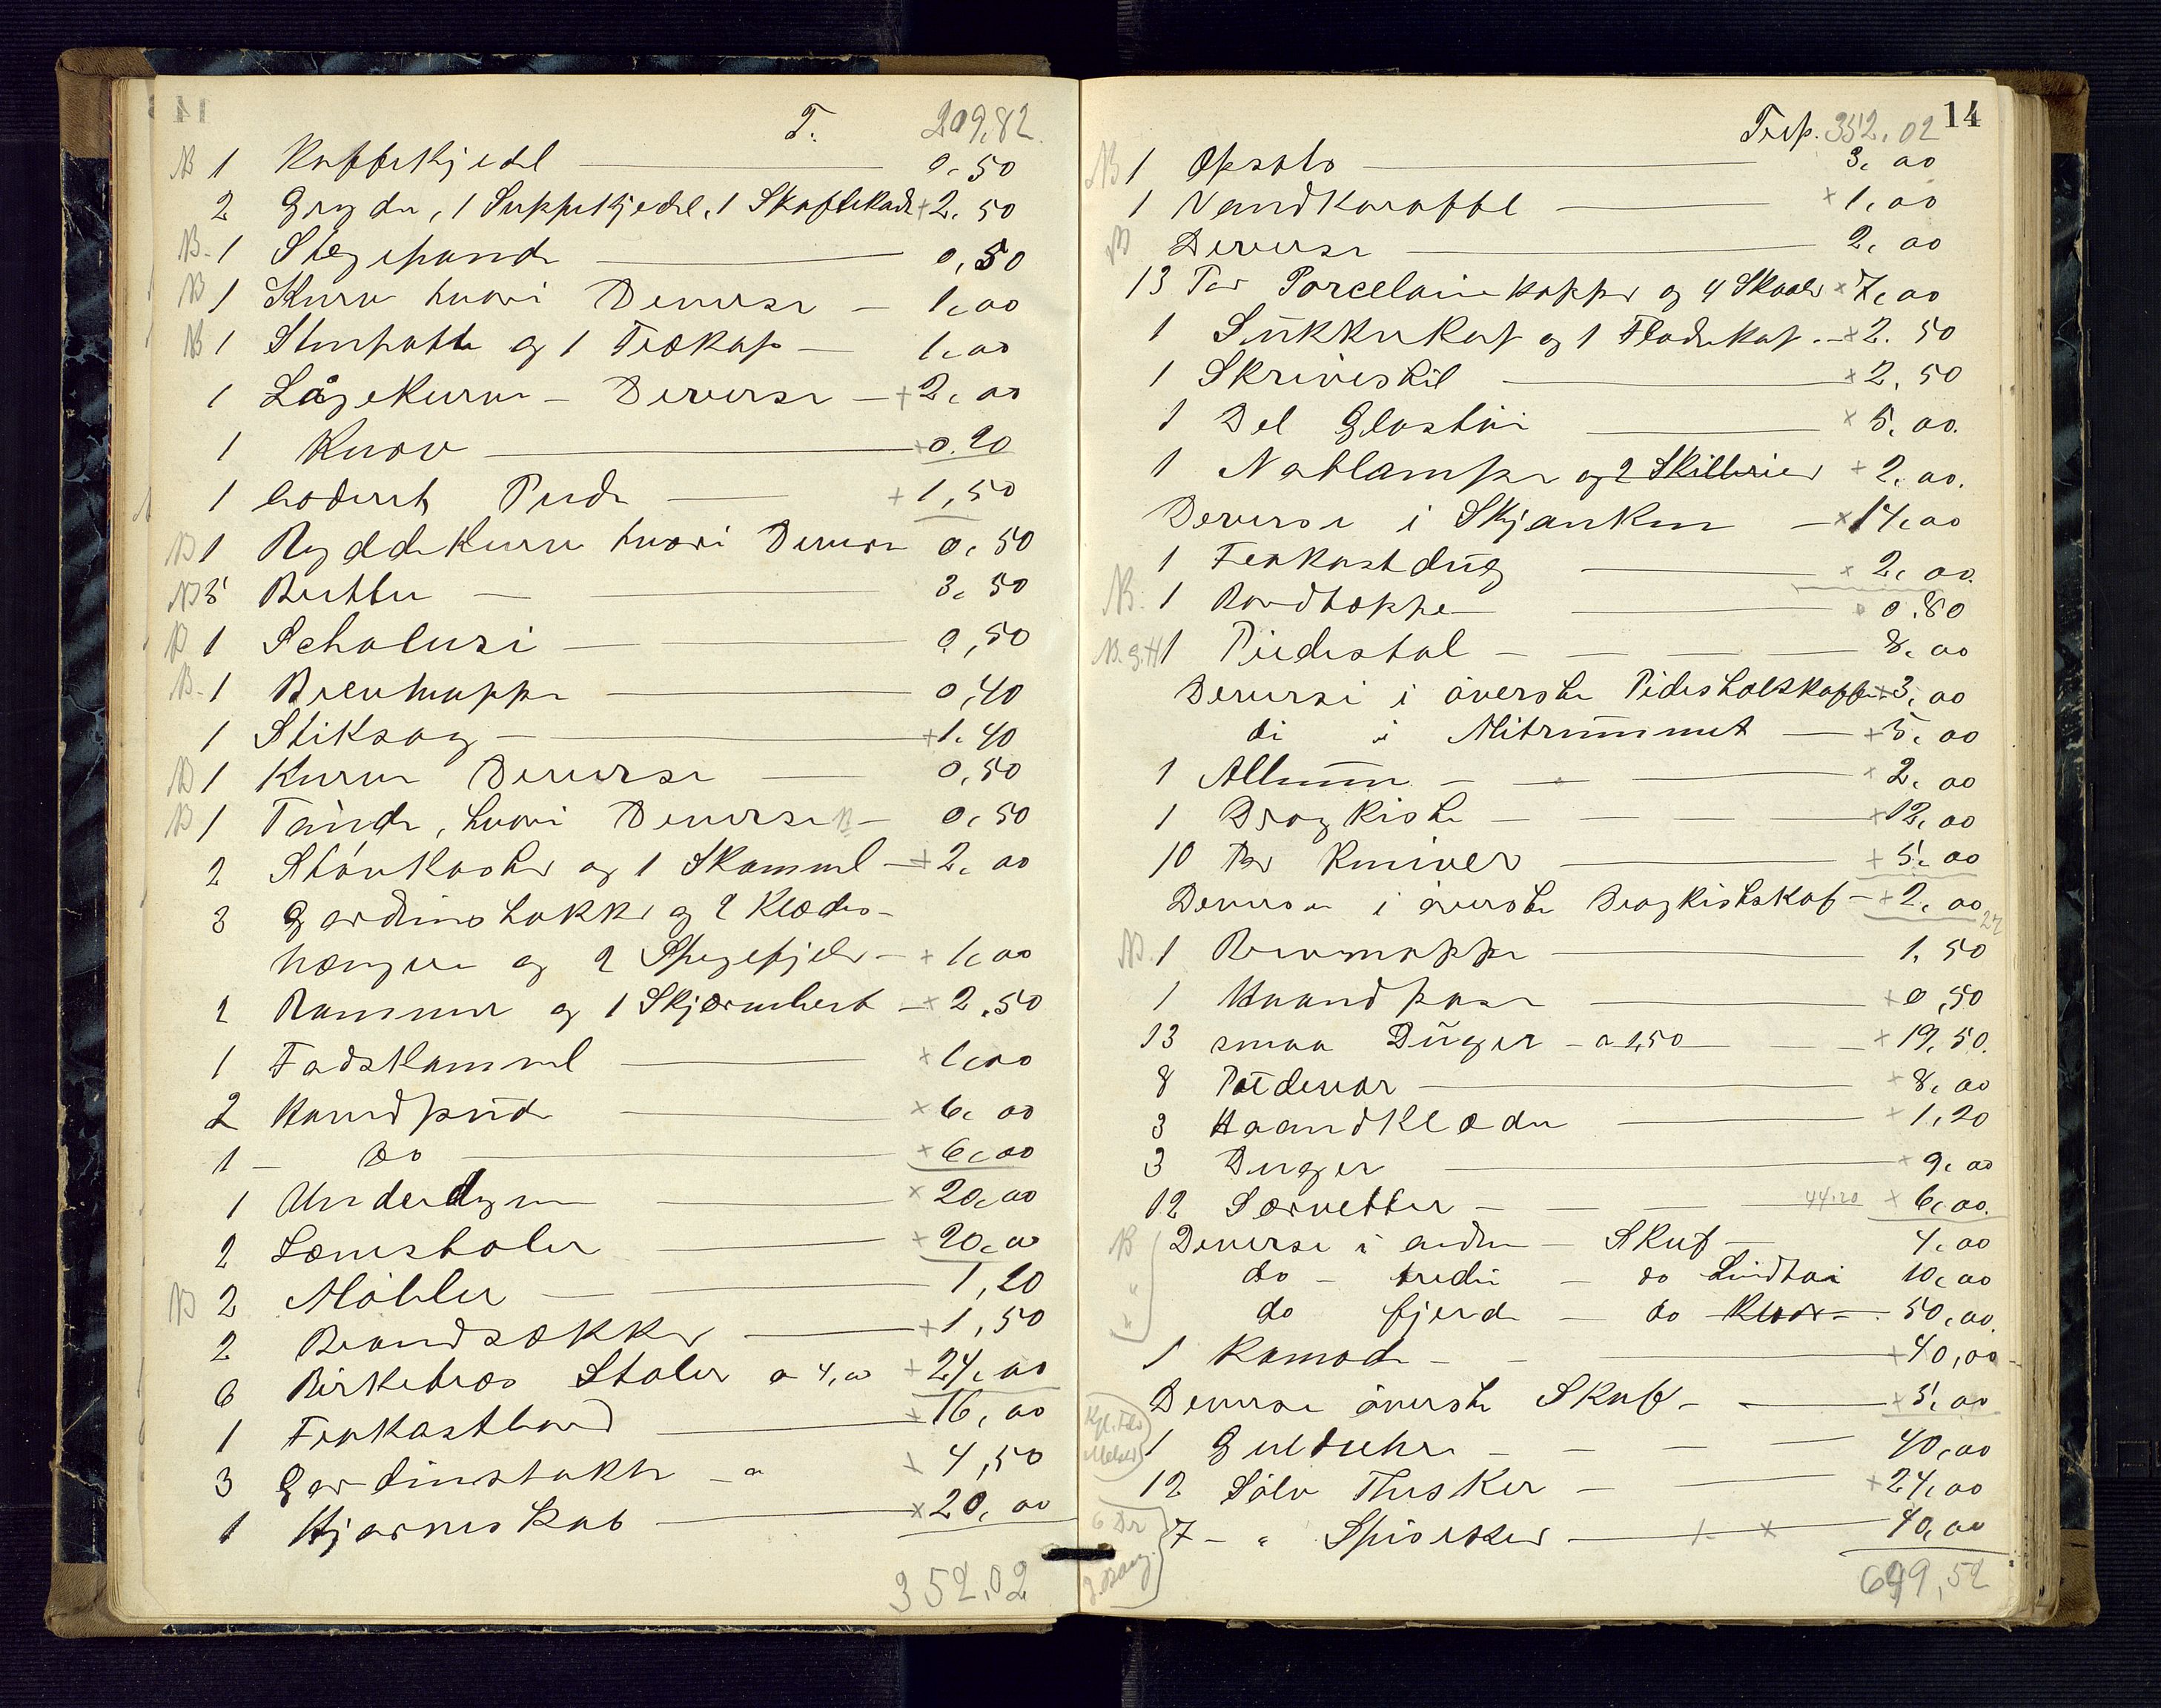 T. 209,82
B 1 Kaffekjedel 0,50
2 Gryder, 1 Suppekjedel, 1 + 2,50
B. 1 Stegepande 0,50
B 1 Kurv hvori Deverse 1,00
B 1 og 1 Trækop 1,00
1 Lågekurv Deverse + 2,00
1 Kurv + 0.20
1 Pude + 1,50
B 1 Ryddekurv hvori Deverse 0,50
B 5 Bøtter 3,50
B 1 0,50
B. 1 Brevmappe 0,40
1 Stiksag + 1.40
B 1 Kurv Deverse 0,50
B 1 Tønde, hvori Deverse B 0,50
2 og 1 Skammel + 2,00
3 Gardinstokke og 2 Klædes-
hængere og 2 Spegefjeler + 1,00
2 Rammer og 1 Skjærmbret + 2,50
1 Fadskammel + 1,00
2 Hovedpude × 6,00
1 - Do + 6,00
1 Underdyne × 20,00
2 Lænestoler + 20,00
B 2 Møbler 1,20
2 Brandsækker + 1,50
6 Birketræs Stoler a 4,00 + 24,00
1 Frokostbord + 16,00
3 Gardinstokke a + 4,50
1 Hjørneskab × 20,00
352,02
Trsp. 352,02 14
B 1 Opsats 3,00
1 Vandkaraffel × 1,00
B Deverse 2,00
13 Par Porcelainskopper og 4 Skaaler × 7,00
1 Sukkerkop og 1 Flødekop + 2.50
1 + 2,50
1 Del Glastøi × 5,00.
1 Natlampe og 2 Skillerier + 2,00.
Deverse i Skjænken × 14,00
1 Frokostdug × 2,00.
B. 1 Bordteppe 0.80
B. g. H 1 Piedestal 8,00
Deverse i øverste Pidestalskuffe + 3,00
di i Mitrummet + 5,00
1 Album × 2,00
1 Dragkiste + 12,00
10 Par Kniver + 5,00
Deverse i øverste Dragkistskuf + 2,00 24
B. 1 Brevmappe 1,50
1 + 0,50
13 smaa Duger a 1,50 + 19,50.
8 Putevar + 8,00
3 Haandklæder + 1,20
3 Duger + 9,00
12 Servetter 44,20 + 6,00.
B Deverse i anden Skuf 4,00
" do tredie do Lindtøi 10,00
" do fjerde do 50,00.
1 Kamode + 40,00
Deverse øverste Skuf + 5,00
1 Guldurh 40,00
12 Sølv Thesker + 24,00
7 - " Spisesker + × 40,00
6 Dr
699,52